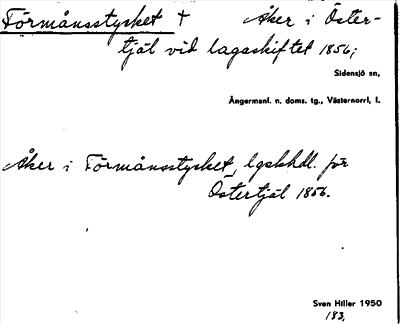 Förmånsstycket + Åker i Öster-
tjäl vid lagaskiftet 1856;
Sidensjö sn,
Ångermanl. n. doms. tg., Västernorrl. l.
Åker i Förmånsstycket, lgskhdl. för
Östertjäl 1856.
Sven Hiller 1950
183,